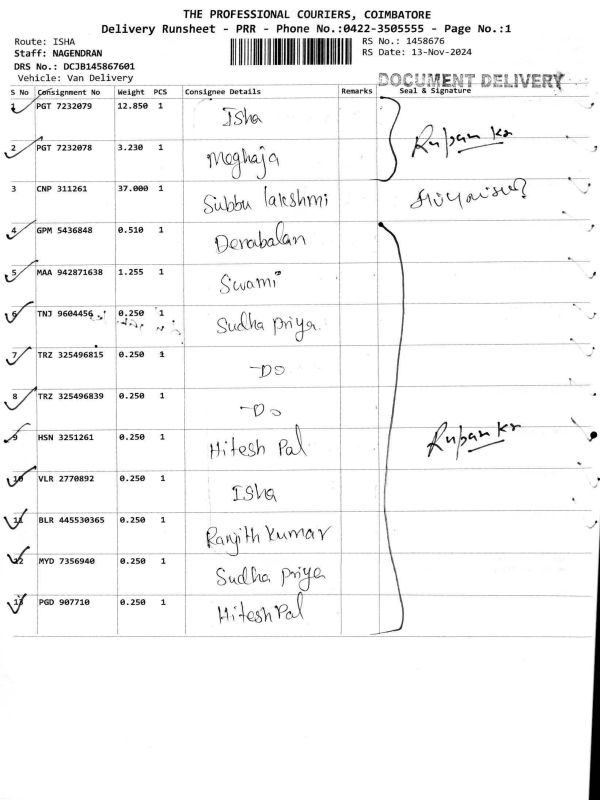 THE PROFESSIONAL COURIERS, COIMBATORE
Delivery Runsheet - PRR - Phone No.:0422-3505555 - Page No.:1
Route: ISHA RS No.: 1458676
Staff: NAGENDRAN RS Date: 13-Nov-2024
DRS No.: DCJB145867601
Vehicle: Van Delivery DOCUMENT DELIVERY
S No Consignment No Weight PCS Consignee Details Remarks Seal & Signature
1 PGT 7232079 12.850 1 Isha
2 PGT 7232078 3.230 1 Meghaja Rupan kr
3 CNP 311261 37.000 1 Subbu lakshmi
4 GPM 5436848 0.510 1 Derabalan
5 MAA 942871638 1.255 1 Swami
6 TNJ 9604456 0.250 1 Sudha priya
7 TRZ 325496815 0.250 1 -Do
8 TRZ 325496839 0.250 1 -Do
9 HSN 3251261 0.250 1 Hitesh Pal Rupan kr
10 VLR 2770892 0.250 1 Isha
11 BLR 445530365 0.250 1 Ranjith Kumar
12 MYD 7356940 0.250 1 Sudha priya
13 PGD 907710 0.250 1 Hitesh Pal